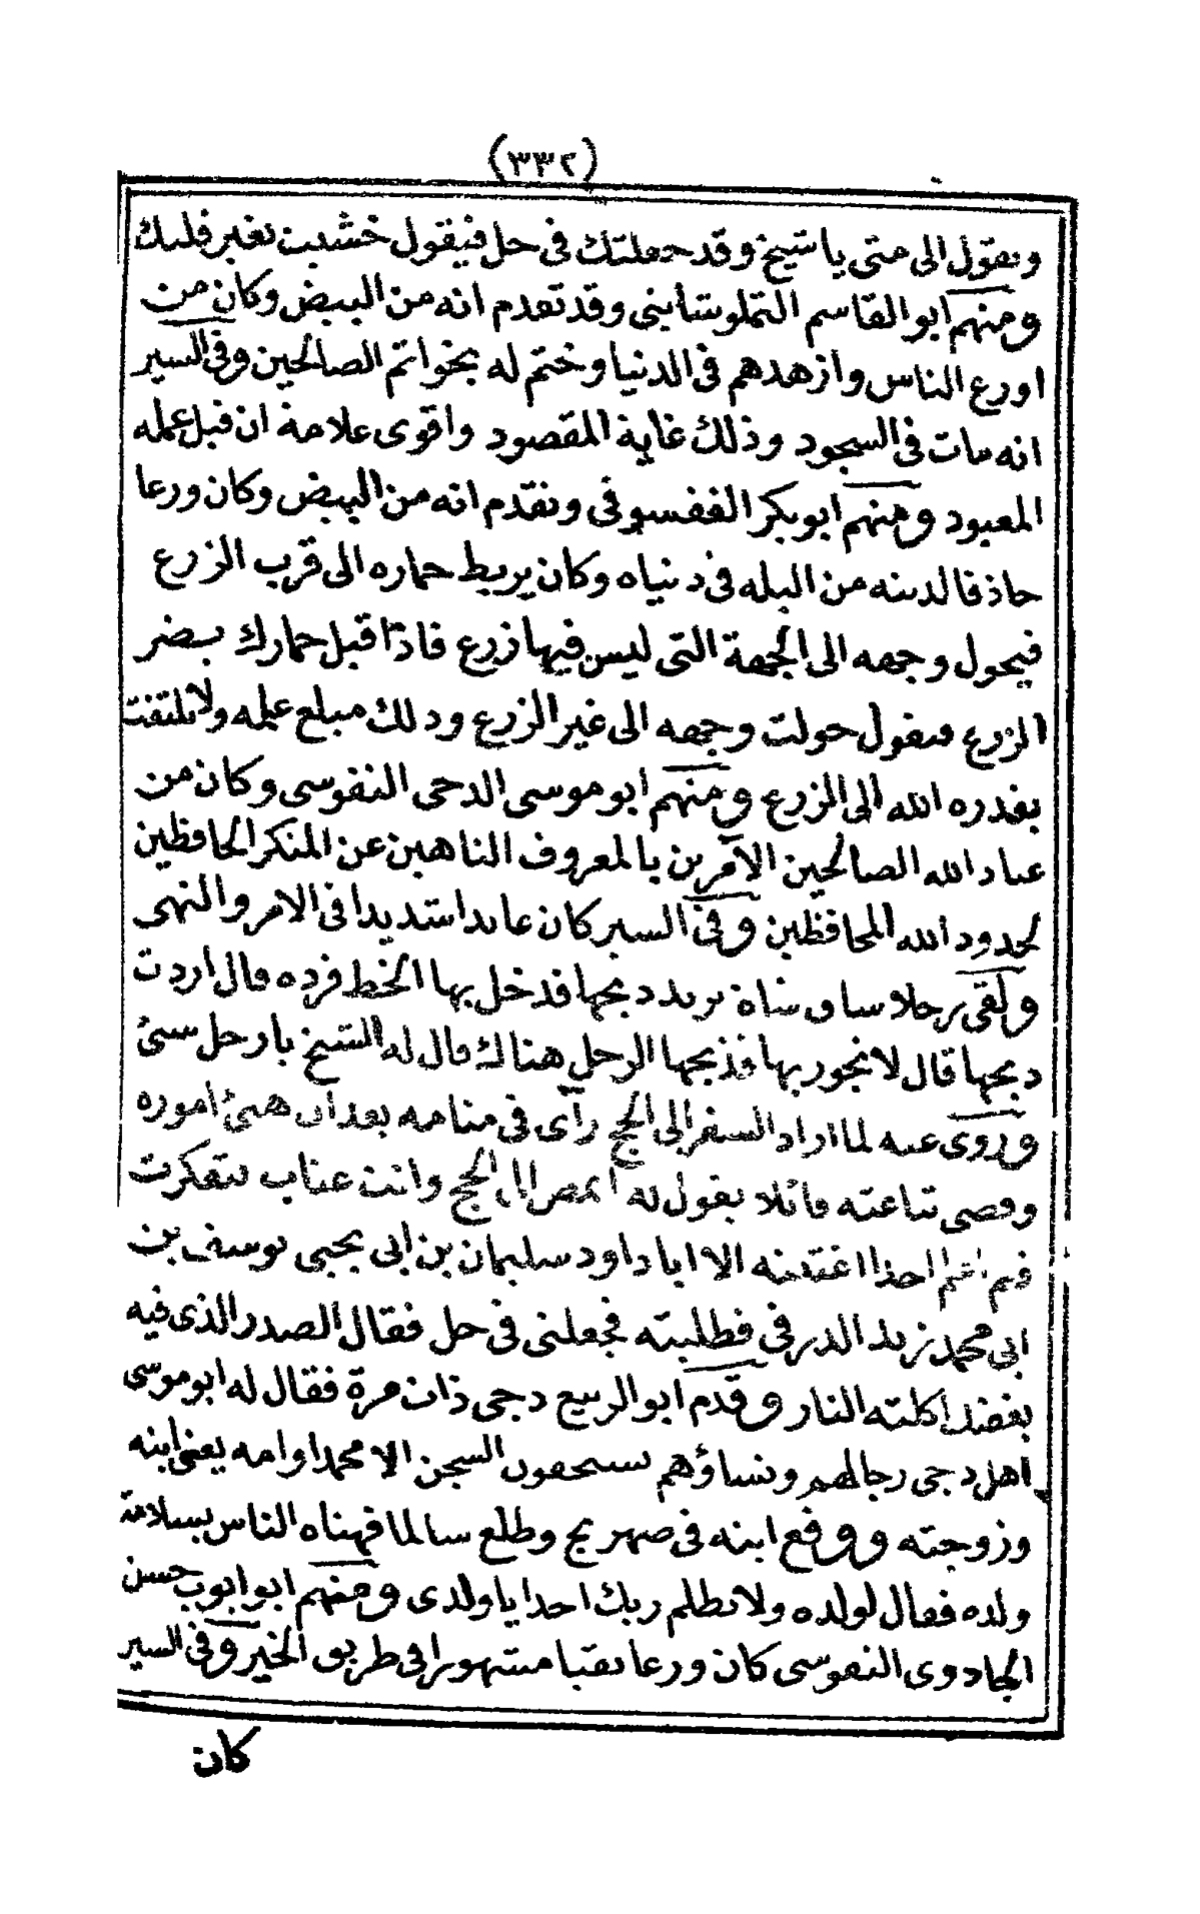 (٣٣٢)
ويقول الى متى يا شيخ وقد جعلتك فى حل فيقول خشيت تغير قلبك
ومنهم ابو القاسم التملوشائنى وقد تقدم انه من البيض وكان من
اورع الناس وازهدهم فى الدنيا وختم له بخواتم الصالحين وفى السير
انه مات فى السجود وذلك غاية المقصود واقوى علامة ان قبل عمله
المعبود ومنهم ابو بكر الغفسوفى وتقدم انه من البيض وكان ورعا
حاذقا لدينه من البله فى دنياه وكان يربط حماره الى قرب الزرع
فيحول وجهه الى الجهة التى ليس فيها زرع فاذا قبل حمارك يضر
الزرع فيقول حولت وجهه الى غير الزرع وذلك مبلغ علمه ولا تلتفت
بقدره الله الى الزرع ومنهم ابو موسى الدجى النفوسى وكان من
عباد الله الصالحين الآمرين بالمعروف الناهين عن المنكر الحافظين
لحدود الله المحافظين وفى السير كان عابدا شديدا فى الامر والنهى
ولقى رجلا ساق شاة يريد ذبحها قد خل بها الخط فرده قال اردت
ذبحها قال لا تجور بها فذبحها الرجل هناك قال له الشيخ يا رجل سئ
وروى عنه لما اراد السفر الى الحج رآى فى منامه بعد ان هيئ اموره
وقضى تباعته قائلا يقول له اتمضى الى الحج وانت عتاب فتفكرت
فلم اعلم احدا اغتبته الا ابا داود سليمان بن ابى يحيى يوسف بن
ابى محمد زيد الدرفى فطلبته فجعلنى فى حل فقال الصدر الذى فيه
بغضك اكلته النار وقدم ابو الربيع دجى ذات مرة فقال له ابو موسى
اهل دجى رجالهم ونساؤهم يستحقون السجن الا محمدا وامه يعنى ابنه
وزوجته ووقع ابنه فى صهريج وطلع سالما فهناه الناس بسلامة
ولده فقال لولده ولا تظلم ربك احدا يا ولدى ومنهم ابو ايوب حسن
الجادوى النفوسى كان ورعا تقيا مشهورا فى طريق الخير وفى السير
كان